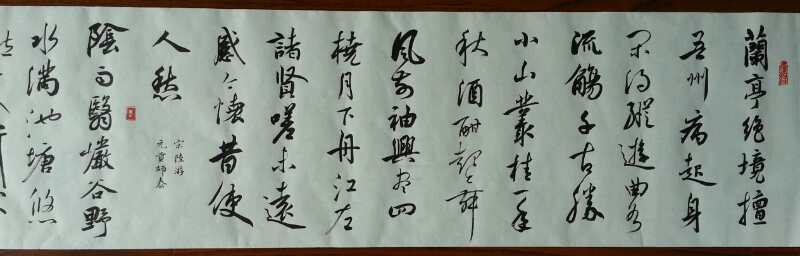 蘭亭絕境擅
吾州病起身
閑得縱遊曲水
流觴千古勝
小山叢桂一年
秋酒酣起舞
風前袖興盡回
橈月下舟江左
諸賢嗟未遠
感今懷昔使
人愁
宋陸游
元貢師泰
陰雨翳巖谷野
水滿池塘悠